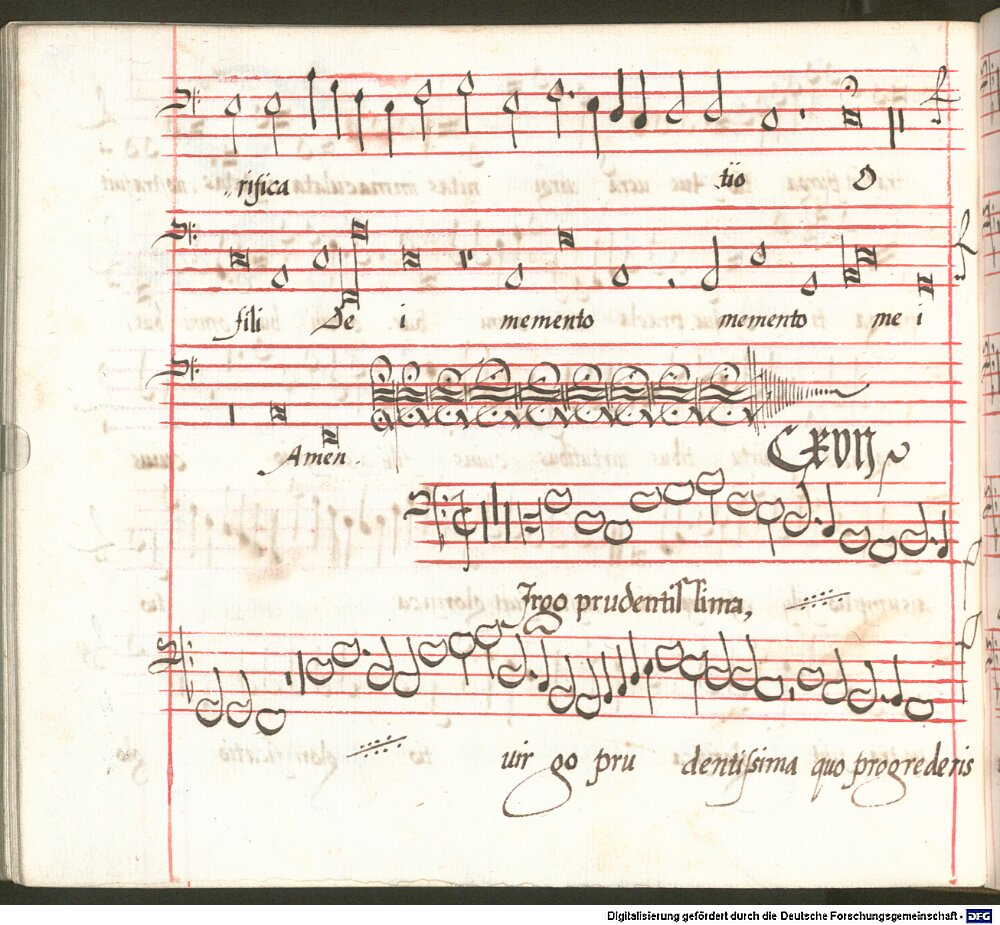 rifica tio O
fili De i memento memento me i
Amen.
CXVII
Irgo prudentissima,
vir go pru dentissima quo progrederis
Digitalisierung gefördert durch die Deutsche Forschungsgemeinschaft - DFG